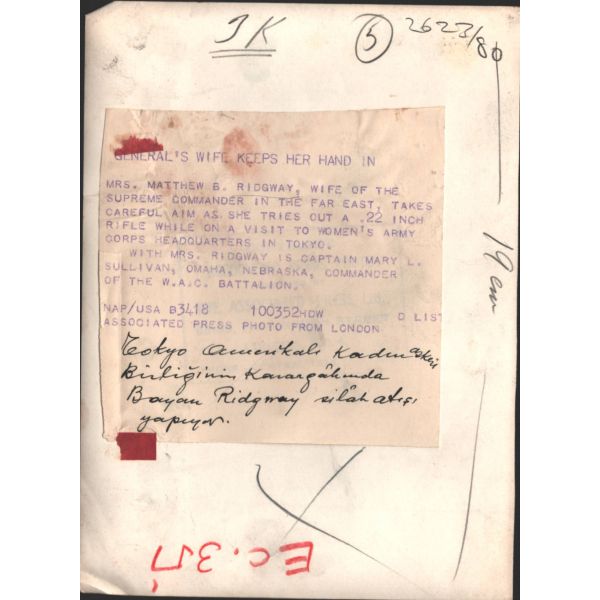 JK
5
2623/80
GENERAL'S WIFE KEEPS HER HAND IN
MRS. MATTHEW B. RIDGWAY, WIFE OF THE
SUPREME COMMANDER IN THE FAR EAST, TAKES
CAREFUL AIM AS SHE TRIES OUT A .22 INCH
RIFLE WHILE ON A VISIT TO WOMEN'S ARMY
CORPS HEADQUARTERS IN TOKYO.
WITH MRS. RIDGWAY IS CAPTAIN MARY L.
SULLIVAN, OMAHA, NEBRASKA, COMMANDER
OF THE W.A.C. BATTALION.
NAP/USA B3418 100352HDW D LIST
ASSOCIATED PRESS PHOTO FROM LONDON
Tokyo Amerikalı Kadın askeri
Birliğinin Karargâhında
Bayan Ridgway silâh atışı
yapıyor.
19 cm